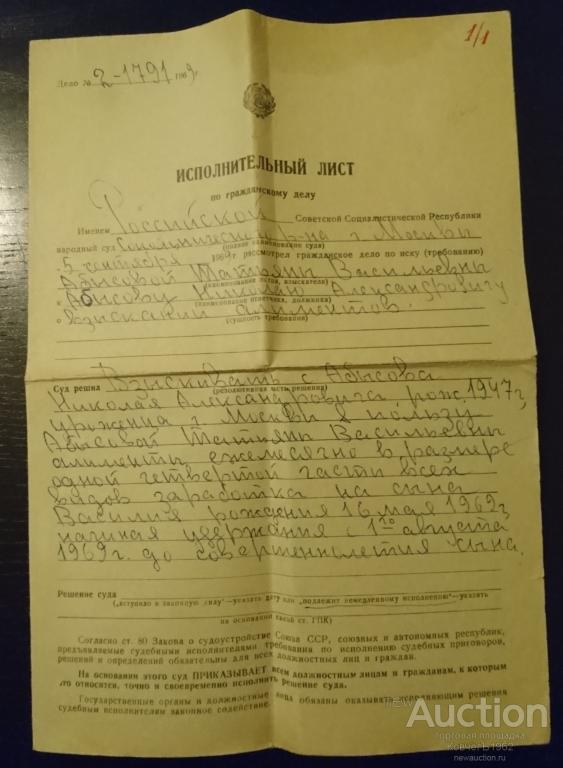 1/1
Дело № 2-1791 1969г.
ИСПОЛНИТЕЛЬНЫЙ ЛИСТ
по гражданскому делу
Именем Российской Советской Социалистической Республики
народный суд Сокольнического р-на г Москвы
(полное наименование суда)
5 сентября 1969г. рассмотрел гражданское дело по иску (требованию)
Абысовой Татьяны Васильевны
(наименование истца, взыскателя)
к Абысову Николаю Александровичу
(наименование ответчика, должника)
о взыскании алиментов.
(сущность требования)
Суд решил Взыскивать с Абысова
(резолютивная часть решения)
Николая Александровича, рож. 1947 г,
уроженца г Москвы в пользу
Абысовой Татьяны Васильевны
алименты ежемесячно в размере
одной четвертой части всех
видов заработка на сына
Василия рождения 16 мая 1969г,
начиная удержания с 1го августа
1969г. до совершеннлетия сына.
Решение суда
(„вступило в законную силу"—указать дату или „подлежит немедленному исполнению"—указать
на основании какой ст. ГПК)
Согласно ст. 80 Закона о судоустройстве Союза ССР, союзных и автономных республик,
предъявляемые судебными исполнителями требования по исполнению судебных приговоров,
решений и определений обязательны для всех должностных лиц и граждан.
На основании этого суд ПРИКАЗЫВАЕТ всем должностным лицам и гражданам, к которым
это относится, точно и своевременно исполнить решение суда.
Государственные органы и должностные лица обязаны оказывать исполняющим решения
судебным исполнителям законное содействие.
Auction
торговая площадка
КовчегЪ1962
newauction.ru